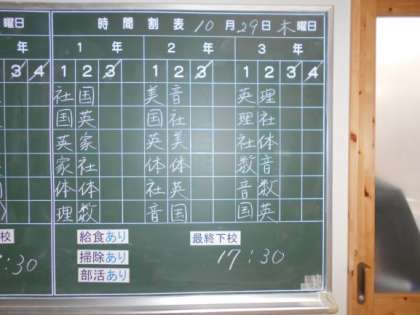 曜日 時間割表 10月29日木曜日
年 1年 2年 3年
3 4 1 2 3 1 2 3 1 2 3
社 国 美 音 英 理
国 英 国 社 理 社
英 家 英 美 社 体
家 社 体 体 数 音
体 体 社 英 音 数
理 数 音 国 国 英
校 給食あり 最終下校
:30 掃除あり 17:30
部活あり